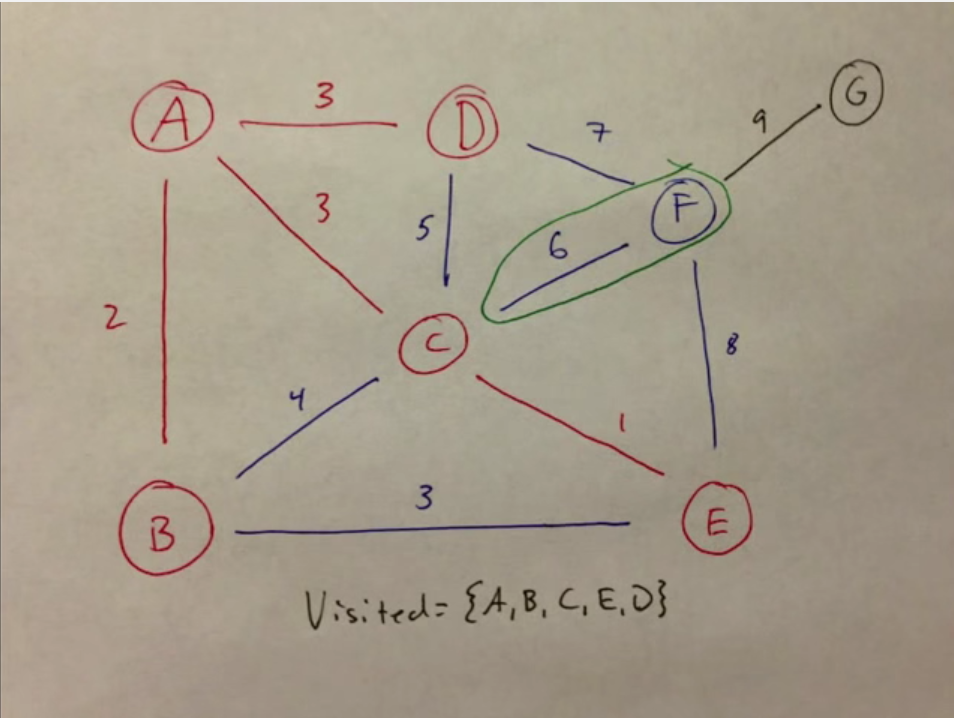 A
3
D
7
9
G
3
5
6
F
2
C
8
4
1
3
B
E
Visited= {A, B, C, E, D}